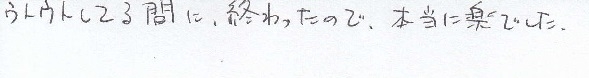 ウトウトしてる間に、終わったので、本当に楽でした.